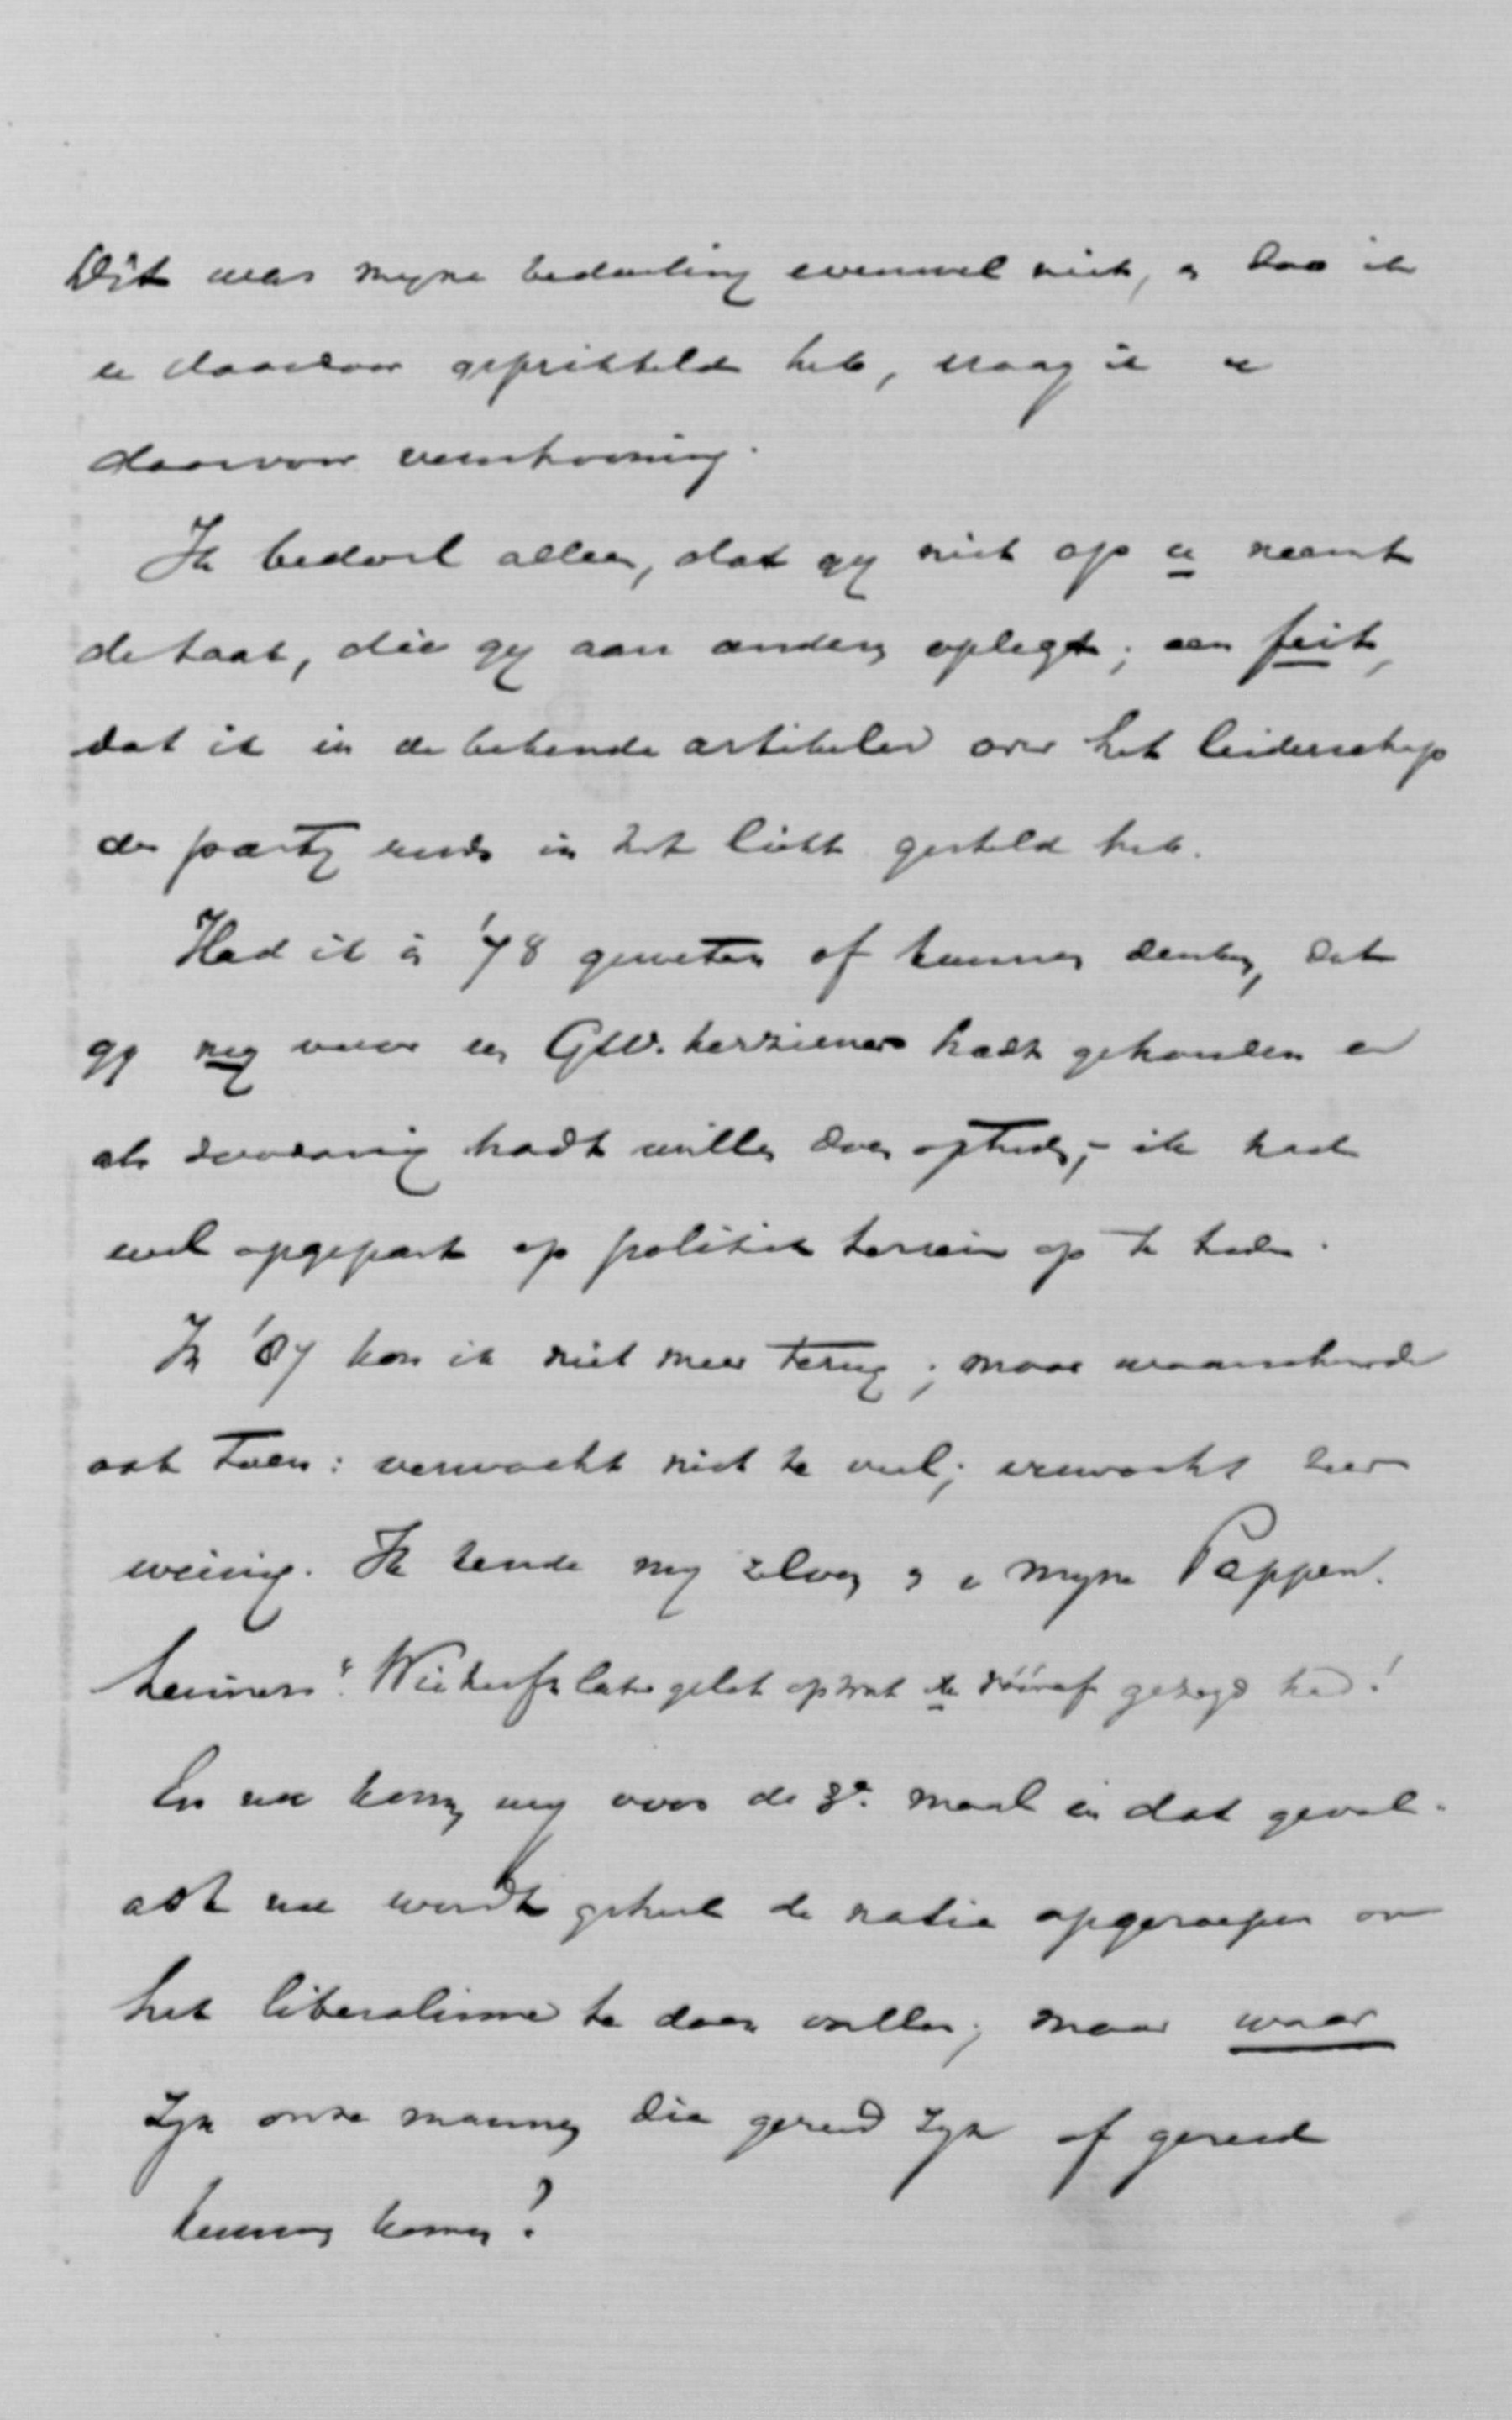 Dit was mijne bedoeling evenwel niet, en zoo ik
u daardoor geprikkeld heb, vraag ik u
daarvoor verschooning.
Ik bedoel alleen, dat gij niet op u neemt
de taak, die gij aan anderen oplegt; een feit,
dat ik in de bekende artikelen over het leiderschap
der partij reeds in het licht gesteld heb.
Had ik in '78 geweten of kunnen denken, dat
gij mij voor een Gw. herziener hadt gehouden en
als zoodanig hadt willen doen optreden, - ik had
wel opgepast op politiek terrein op te treden.
In '87 kon ik niet meer terug; maar waarschuwde
ook toen: verwacht niet te veel; verwacht zeer
weinig. Ik kende mij zelven en "mijne Pappen-
heimers". Niet later gelet op wat ik vooraf gezegd had!
En nu komen wij voor de 3e. maal in dat geval.
ook nu wordt geheel de natie opgeroepen om
het liberalisme te doen vallen; maar waar
zijn onze mannen die gereed zijn of gereed
kunnen komen?